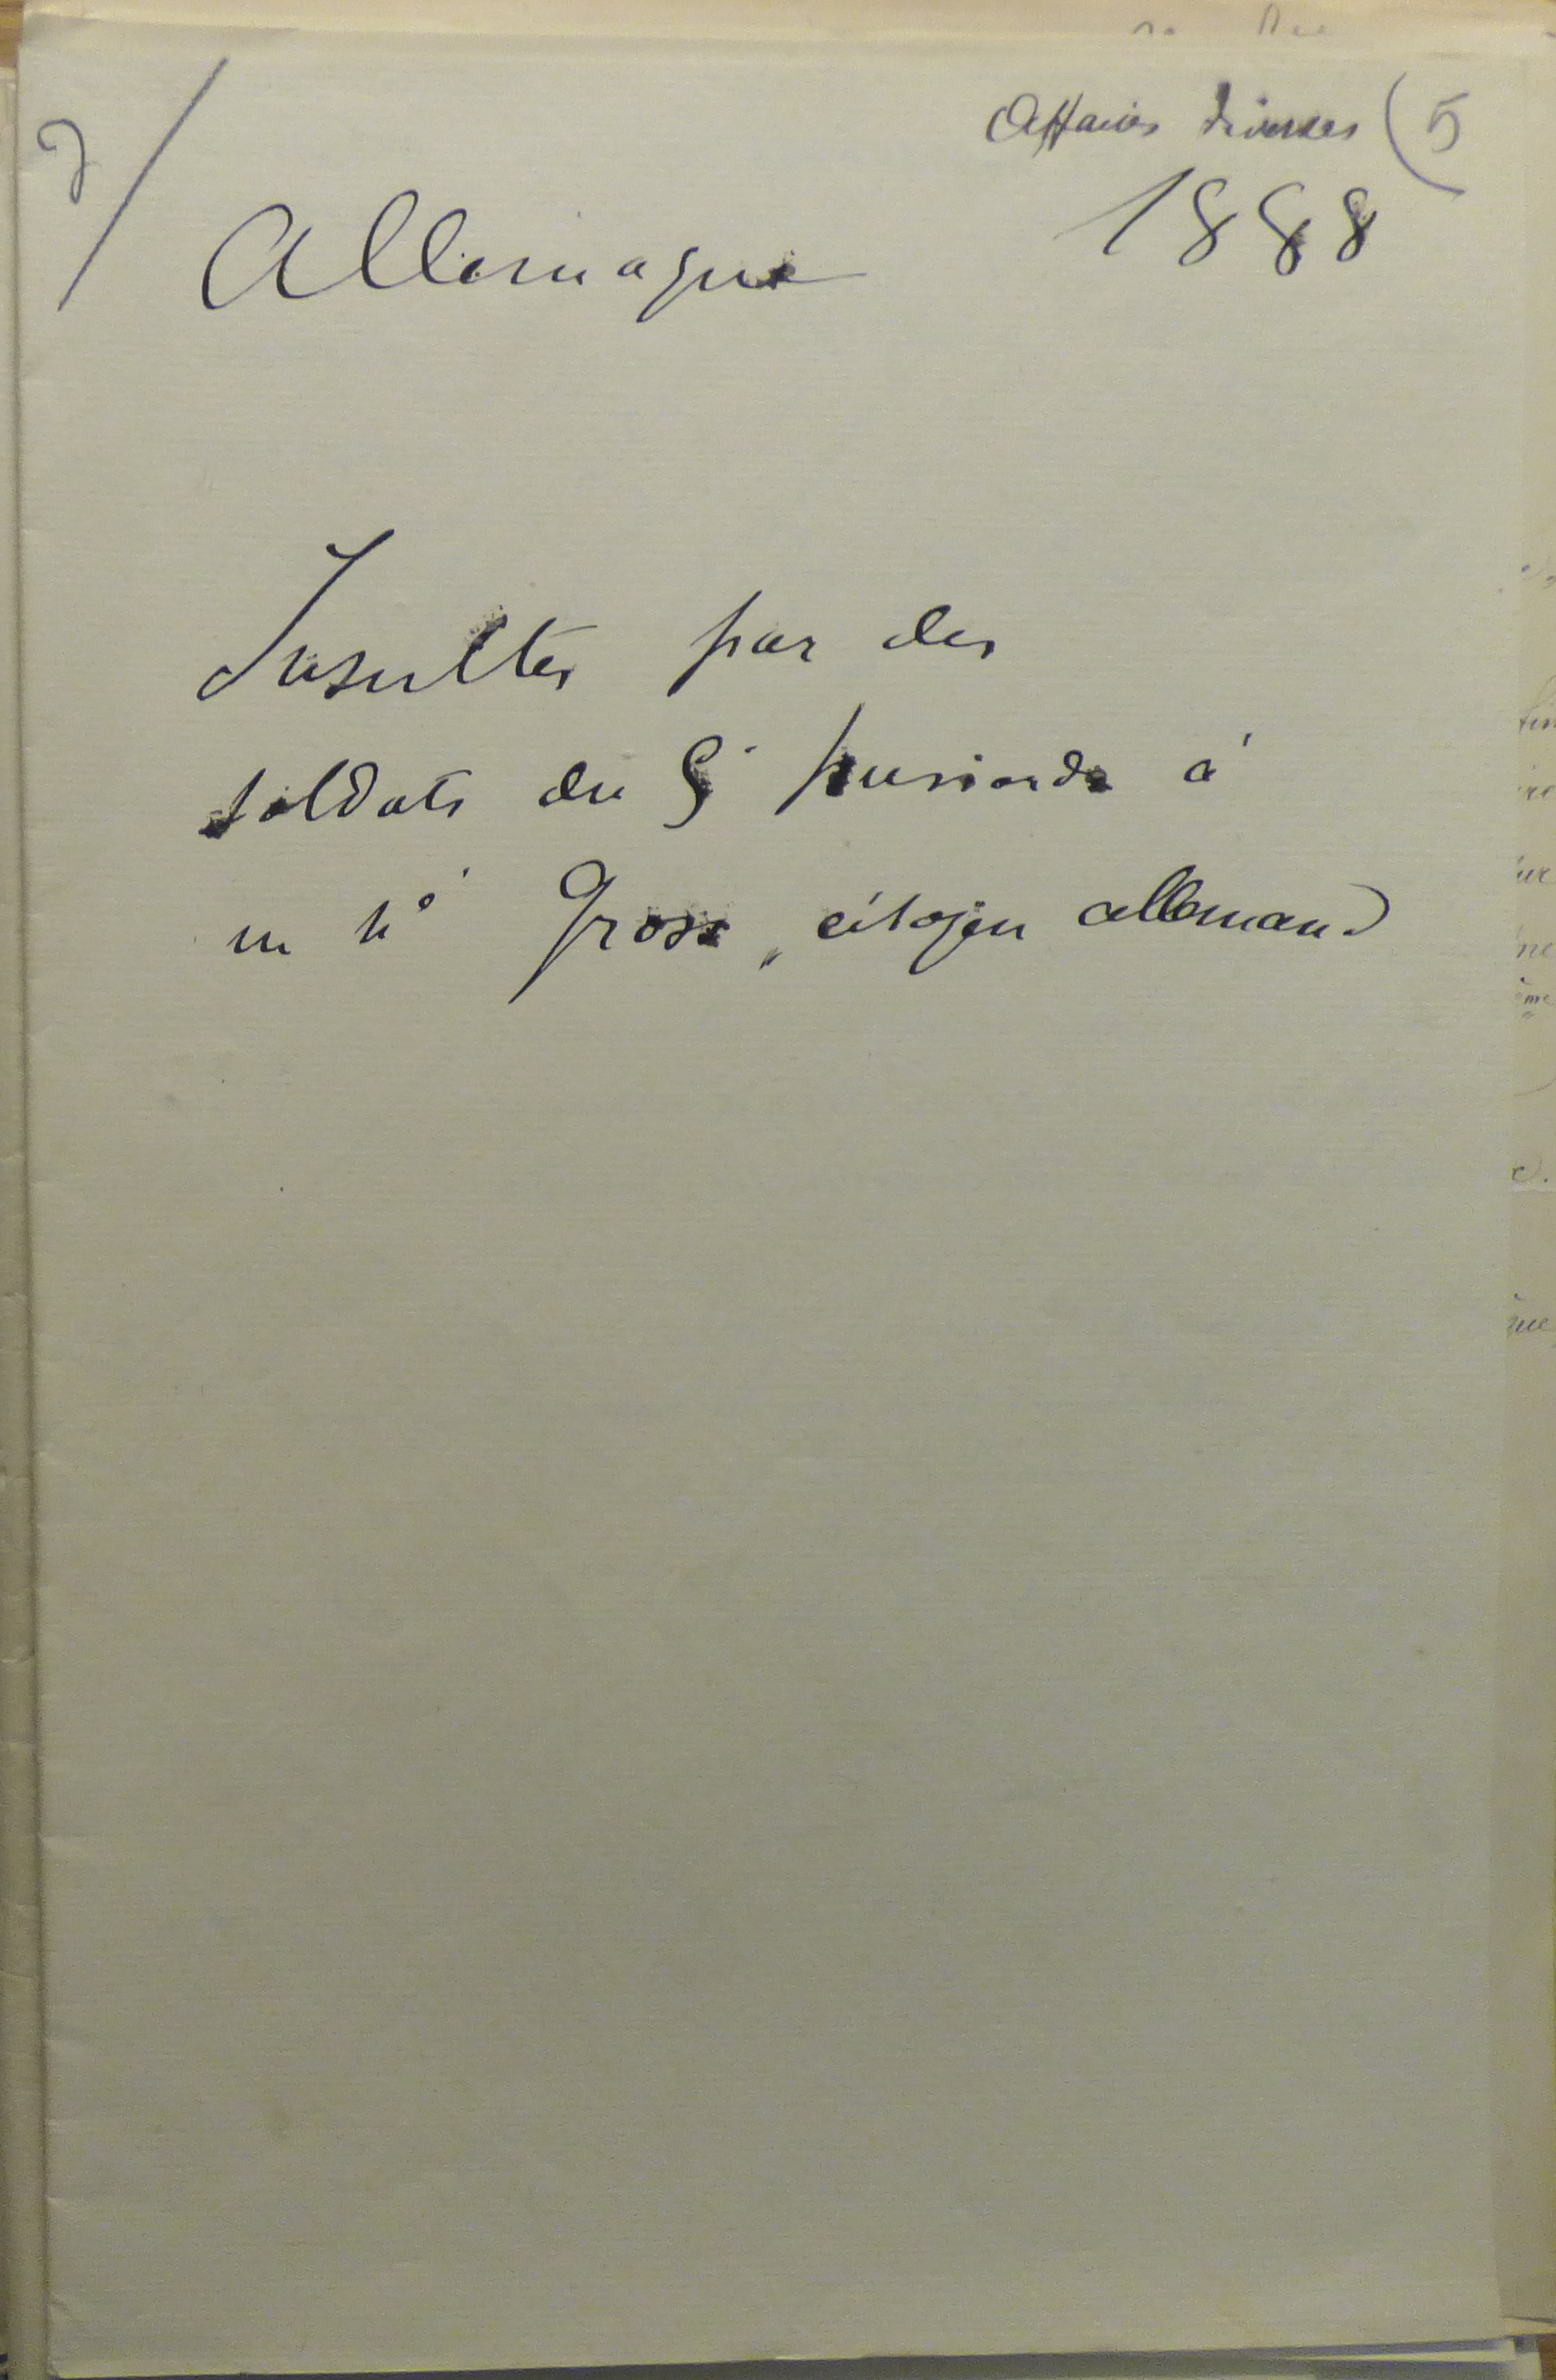 Affaires diverses (5
1888
Allemagne
Insultes par des
soldats du à
un né Gross, citoyen allemand